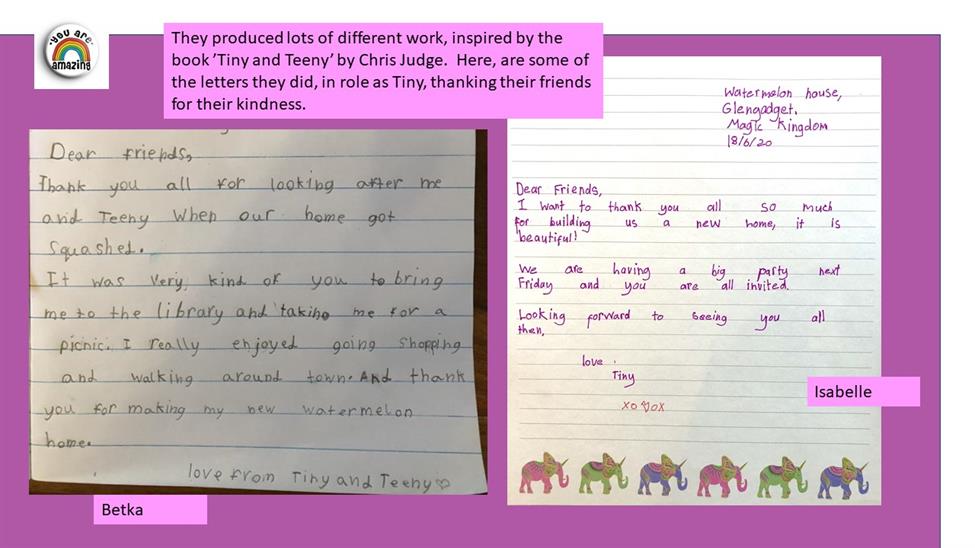 YOU ARE
amazing
They produced lots of different work, inspired by the
book ’Tiny and Teeny’ by Chris Judge.  Here, are some of
the letters they did, in role as Tiny, thanking their friends
for their kindness.
Dear friends,
Thank you all for looking after me
and Teeny When our home got
Squashed.
It was very, kind of you to bring
me to the library and taking me for a
picnic. I really enjoyed going shopping
and walking around town. And thank
you for making my new watermelon
home.
love from Tiny and Teeny♡
Betka
Watermelon house,
Glengadget,
Magic Kingdom
18/6/20
Dear Friends,
I want to thank you all so much
for building us a new home, it is
beautiful!
We are having a big party next
Friday and you are all invited.
Looking forward to seeing you all
then,
love
Tiny
xo♡ox
Isabelle